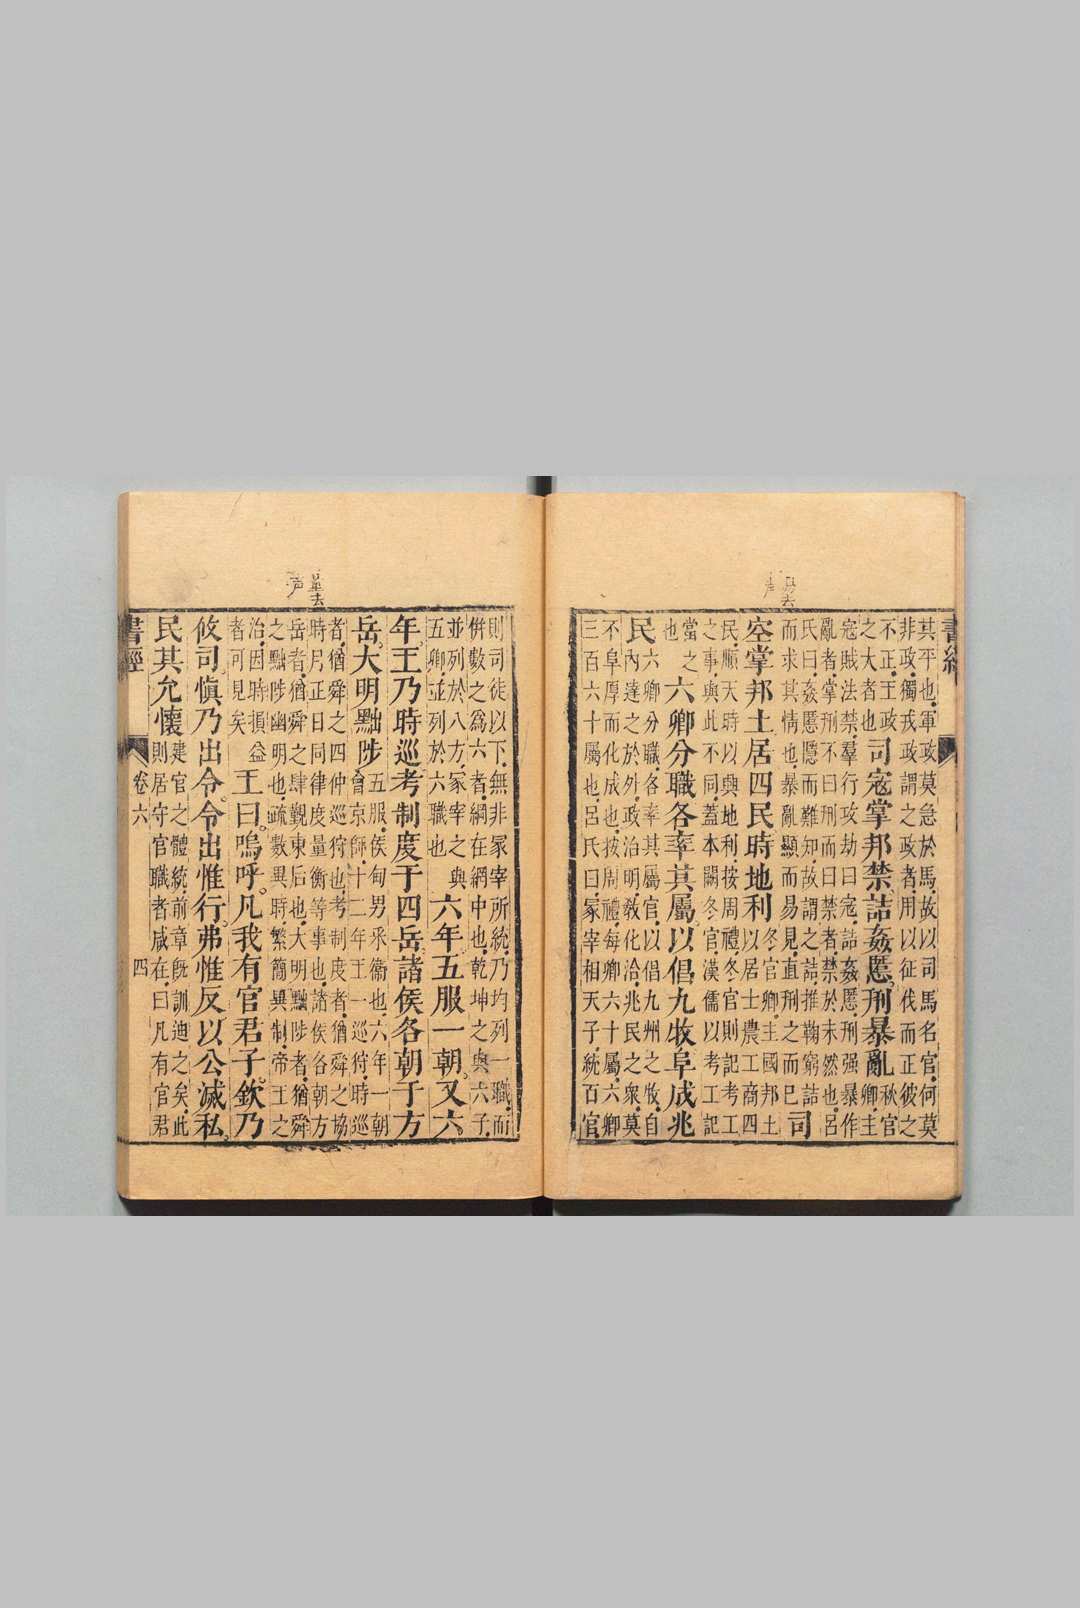 其平也軍政莫急於馬故以司馬名官何莫
非政獨戎政謂之政者用以征伐而正彼之
不正王政
之大者也
司寇掌邦禁詰姦慝刑暴亂
秋官
卿主
寇賊法禁羣行攻劫曰寇詰姦慝刑强暴作
亂者掌刑不曰刑而曰禁者禁於未然也呂
氏曰姦慝隱而難知故謂之詰推鞠窮詰
而求其情也暴亂顯而易見直刑之而已
司
空掌邦土居四民時地利
冬官卿主國邦土
以居士農工商四
民順天時以興地利按周禮冬官則記考工
之事與此不同蓋本闕冬官漢儒以考工記
當之
也
六卿分職各率其屬以倡九牧阜成兆
民
六卿分職各率其屬官以倡九州之牧自
內達之於外政治明教化洽兆民之衆莫
不阜厚而化成也按周禮每卿六十屬六卿
三百六十屬也呂氏曰冢宰相天子統百官
易去
声
書經
則司徒以下無非冢宰所統乃均列一職而
併數之爲六者綱在網中也乾坤之與六子
並列於八方冢宰之與
五卿並列於六職也
六年五服一朝又六
年王乃時巡考制度于四岳諸侯各朝于方
岳大明黜陟
五服侯甸男采衛也六年一朝
會京師十二年王一巡狩時巡
者猶舜之四仲巡狩也考制度者猶舜之協
時月正日同律度量衡等事也諸侯各朝方
岳者猶舜之肆覲東后也大明黜陟者猶舜
之黜陟幽明也疏數異時繁簡異制帝王之
治因時損益
者可見矣
王曰嗚呼凡我有官君子欽乃
攸司慎乃出令令出惟行弗惟反以公滅私
民其允懷
建官之體統前章既訓迪之矣此
則居守官職者咸在曰凡有官君
量去
声
書經
卷六
四